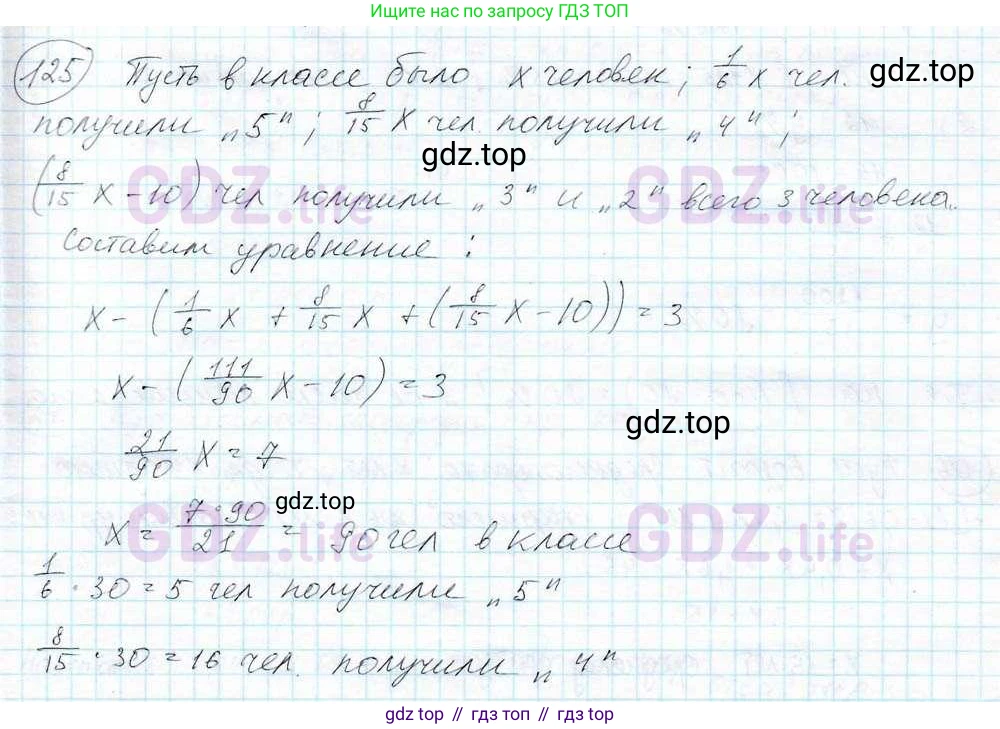 Ищите нас по запросу ГДЗ ТОП
125 Пусть в классе было x человек; 1/6 x чел. gdz.top
получили „5"; 8/15 x чел. получили „4";
gdz.top
(8/15 x - 10) чел получили „3" и „2" всего 3 человека.
GDZ.life GDZ.life
Составим уравнение:
x - (1/6 x + 8/15 x + (8/15 x - 10)) = 3
x - (111/90 x - 10) = 3
gdz.top
21/90 x = 7
gdz.top
x = 7·90/21 = 90 чел в классе
GDZ.life GDZ.life
1/6 · 30 = 5 чел получили „5"
8/15 · 30 = 16 чел. получили „4"
gdz top // гдз топ // gdz top